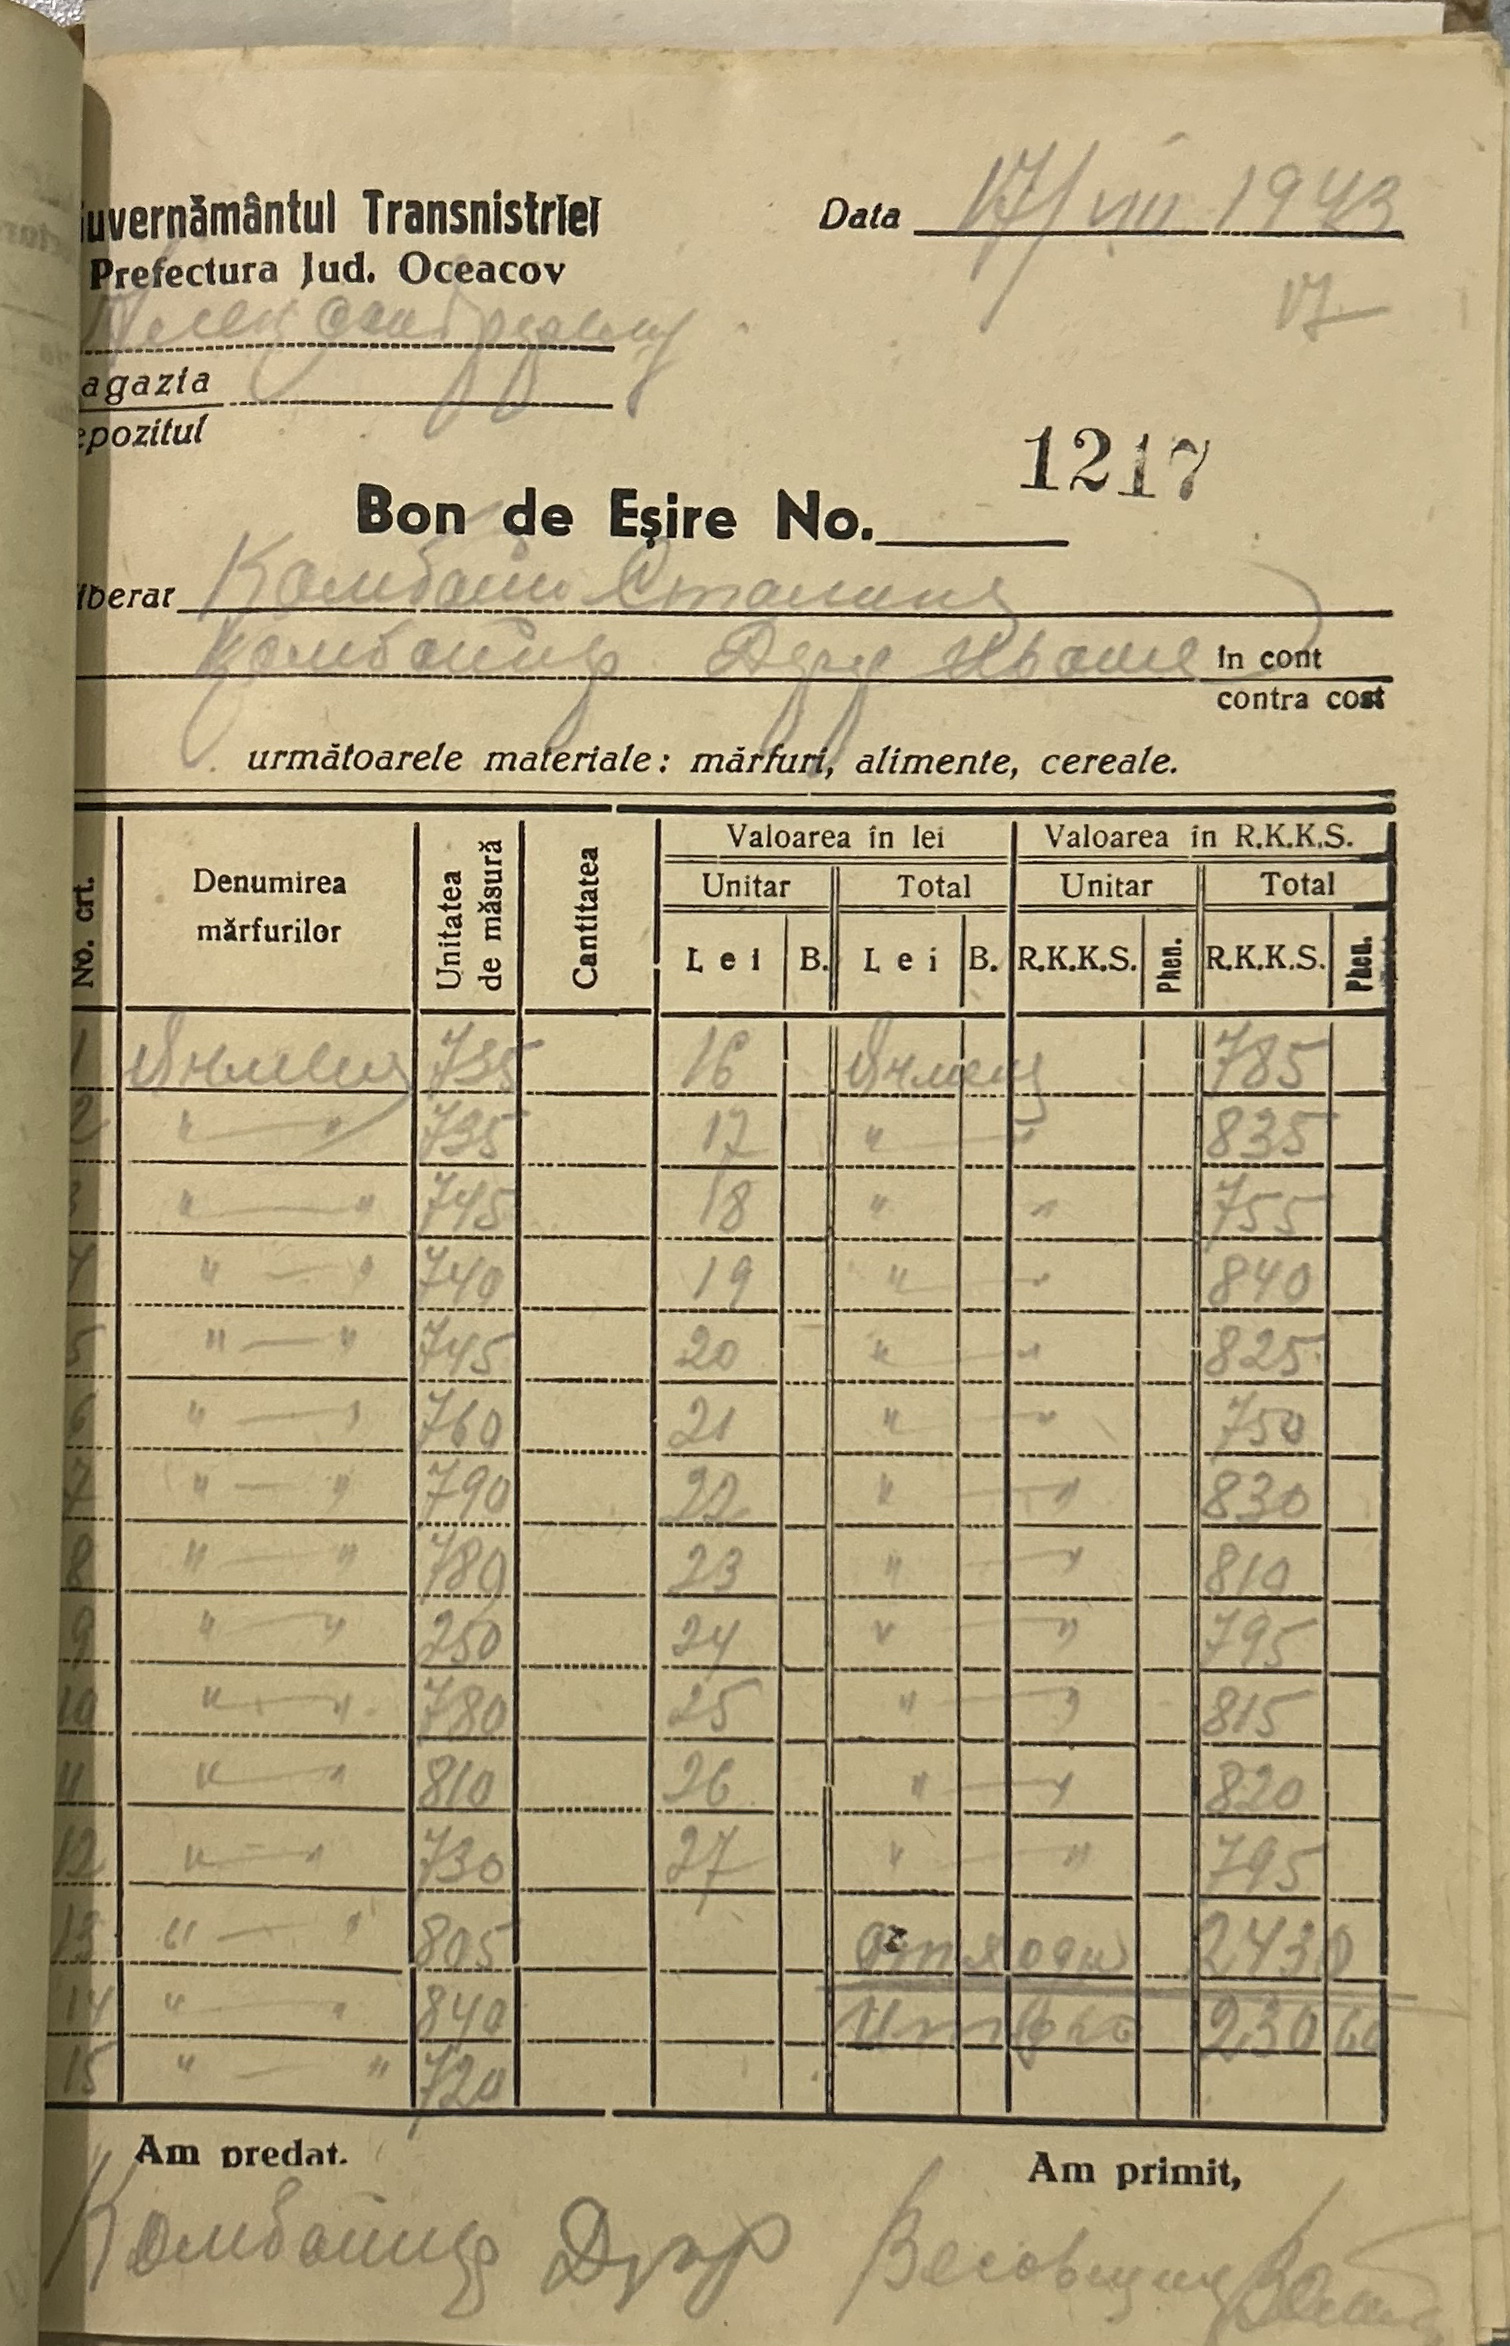 uvernământul Transnistriei
Data 17/VIII 1943
Prefectura Jud. Oceacov
17
agazia
epozitul
1217
Bon de Eşire No.
iberat Комбайн Сталинец
Комбайнер Дур Иване in cont
contra cost
următoarele materiale: mărfuri, alimente, cereale.
No. crt. Denumirea mărfurilor Unitatea de măsură Cantitatea Valoarea în lei Valoarea în R.K.K.S.
Unitar Total Unitar Total
Lei B. Lei B. R.K.K.S. Phen. R.K.K.S. Phen.
1 Ячмень 735 16 Ячмень 785
2 " — " 735 17 " — " 835
3 " — " 745 18 " " 755
4 " — " 740 19 " — " 840
5 " — " 745 20 " — " 825
6 " — " 760 21 " — " 750
7 " — " 790 22 " — " 830
8 " — " 780 23 " — " 810
9 " — " 750 24 " — " 795
10 " — " 780 25 " — " 815
11 " — " 810 26 " — " 820
12 " — " 730 27 " " 795
13 " — " 805 отходы 2430
14 " — " 840 Итого 23060
15 " — " 720
Am predat.
Am primit,
Комбайнер Дур Весовщик